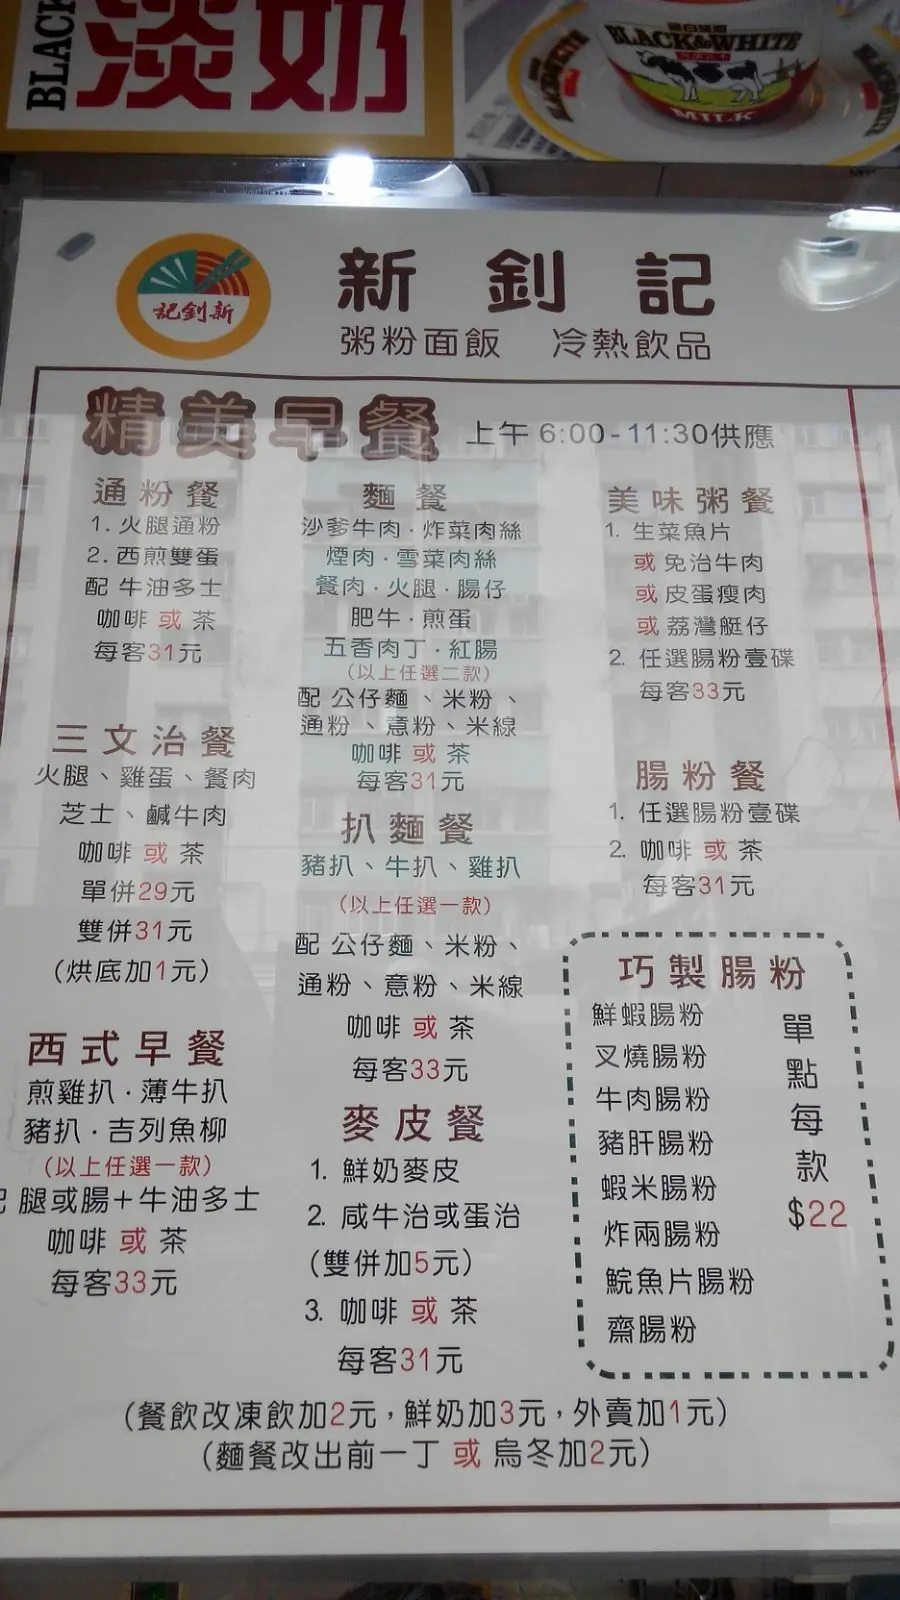 BLACK
淡奶
BLACK&WHITE
MILK
新釗記
記釗新
粥粉面飯 冷熱飲品
精美早餐 上午 6:00-11:30供應
通粉餐
1. 火腿通粉
2. 西煎雙蛋
配 牛油多士
咖啡 或 茶
每客31元
三文治餐
火腿、雞蛋、餐肉
芝士、鹹牛肉
咖啡 或 茶
單併29元
雙併31元
(烘底加1元)
西式早餐
煎雞扒·薄牛扒
豬扒·吉列魚柳
(以上任選一款)
腿或腸+牛油多士
咖啡 或 茶
每客33元
麵餐
沙爹牛肉·炸菜肉絲
煙肉·雪菜肉絲
餐肉·火腿·腸仔
肥牛·煎蛋
五香肉丁·紅腸
(以上任選二款)
配 公仔麵、米粉、
通粉、意粉、米線
咖啡 或 茶
每客31元
扒麵餐
豬扒、牛扒、雞扒
(以上任選一款)
配 公仔麵、米粉、
通粉、意粉、米線
咖啡 或 茶
每客33元
麥皮餐
1. 鮮奶麥皮
2. 咸牛治或蛋治
(雙併加5元)
3. 咖啡 或 茶
每客31元
美味粥餐
1. 生菜魚片
或 免治牛肉
或 皮蛋瘦肉
或 荔灣艇仔
2. 任選腸粉壹碟
每客33元
腸粉餐
1. 任選腸粉壹碟
2. 咖啡 或 茶
每客31元
巧製腸粉
鮮蝦腸粉
叉燒腸粉
牛肉腸粉
豬肝腸粉
蝦米腸粉
炸兩腸粉
鯇魚片腸粉
齋腸粉
單點每款
$22
(餐飲改凍飲加2元，鮮奶加3元，外賣加1元)
(麵餐改出前一丁 或 烏冬加2元)